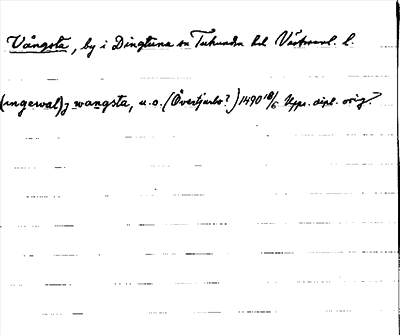 Vångsta, by i Dingtuna sn Tuhundra hd Västmanl. l.
(ingewal) j wangsta, u.o. (Övertjurbo?) 1490 18/6 Upps. dipl. orig.?